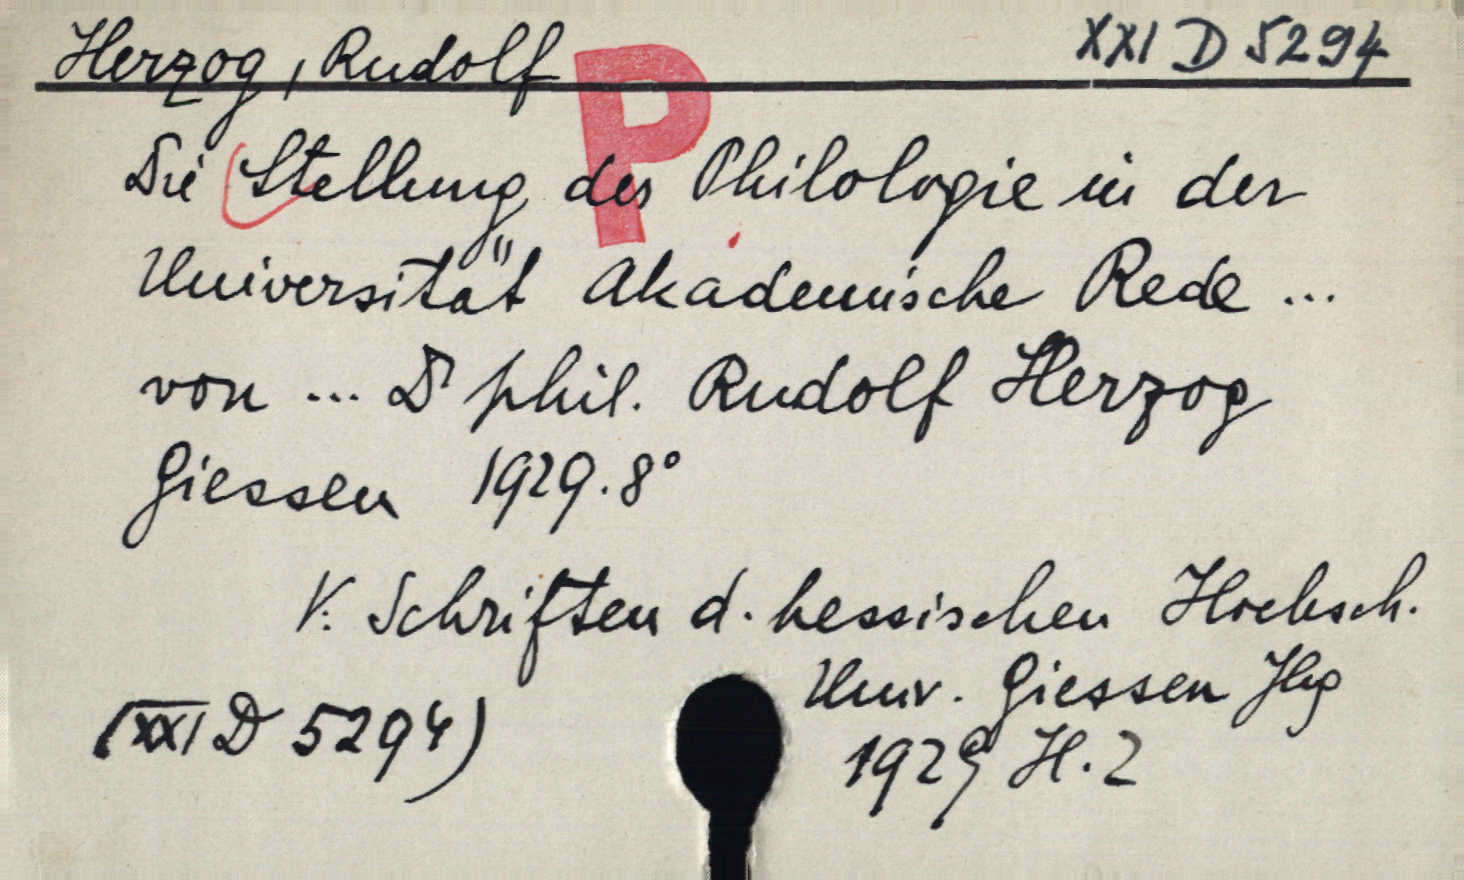 Herzog, Rudolf XXI D 5294
P
Die Stellung der Philologie in der
Universität Akademische Rede ...
von ... Dr phil. Rudolf Herzog
Giessen 1929. 8°
V. Schriften d. hessischen Hochsch.
Univ. Giessen Jhg
(XXI D 5294) 1929 H. 2